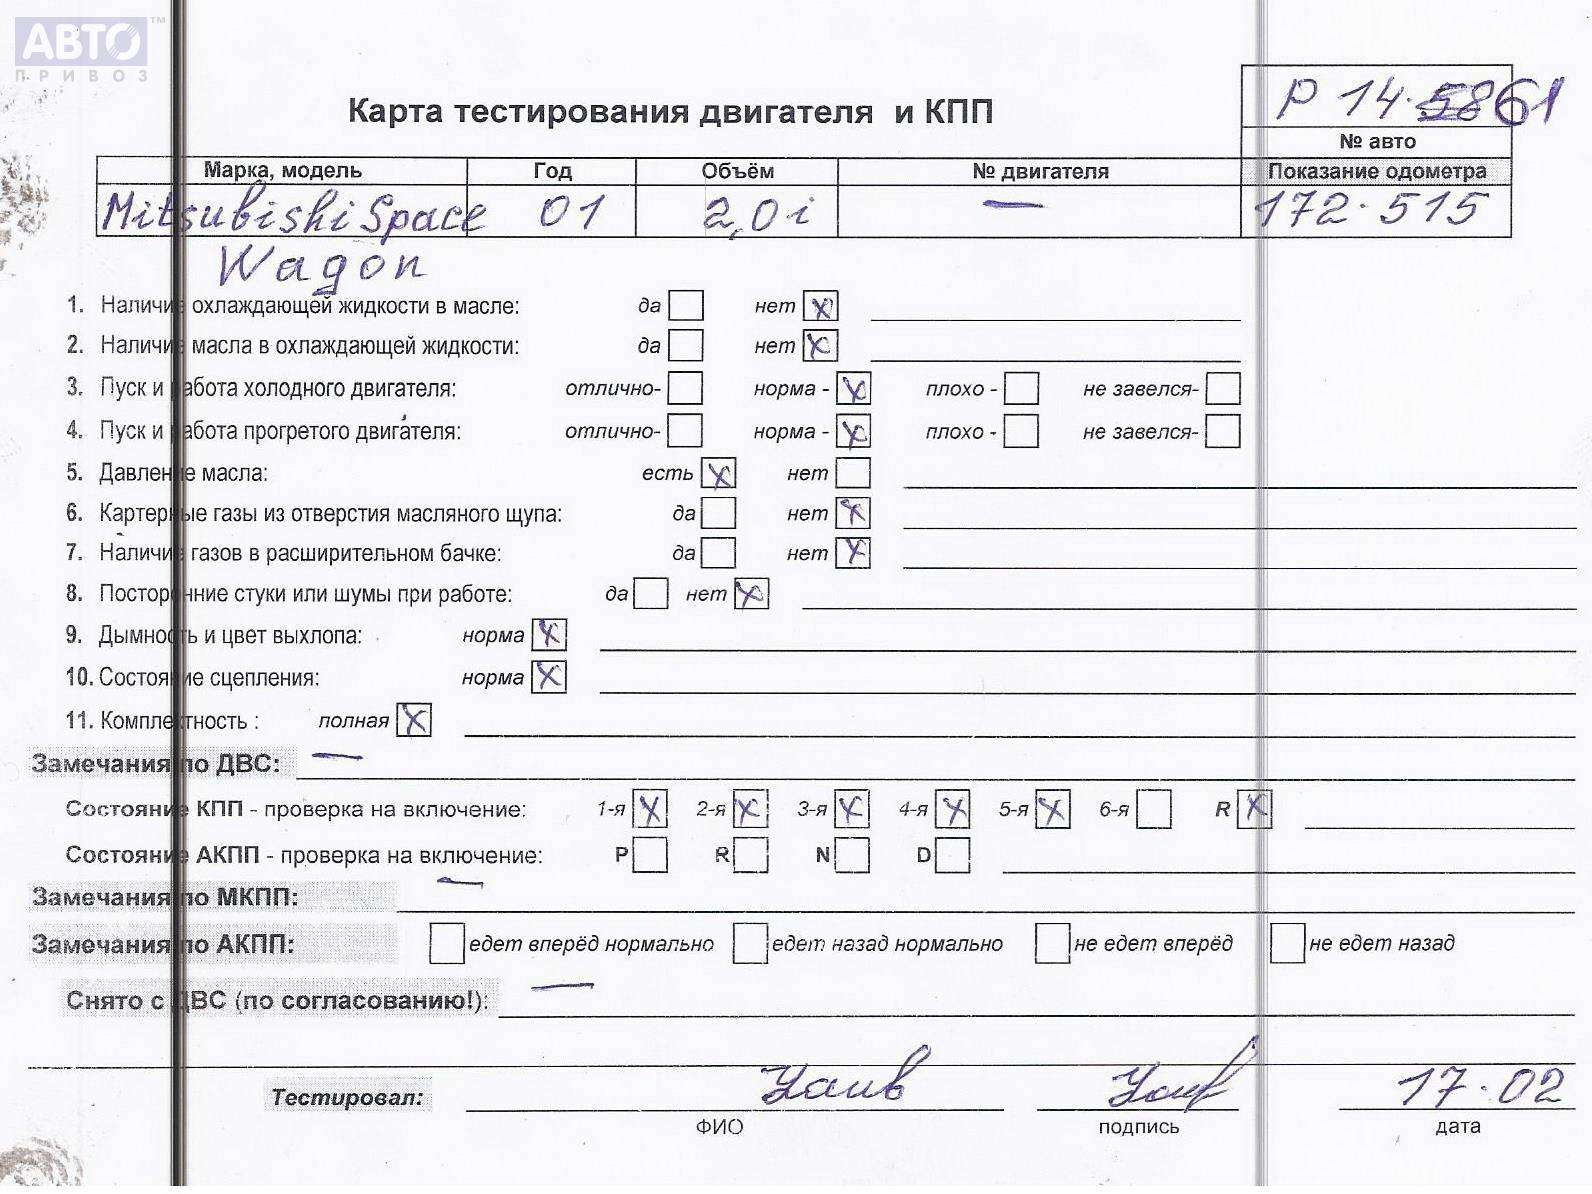 АВТО™
ПРИВОЗ
Р 14.5861
Карта тестирования двигателя и КПП
№ авто
Марка, модель Год Объём № двигателя Показание одометра
Mitsubishi Space 01 2,0i — 172.515
Wagon
1. Наличие охлаждающей жидкости в масле: да нет x
2. Наличие масла в охлаждающей жидкости: да нет x
3. Пуск и работа холодного двигателя: отлично- норма - x плохо - не завелся-
4. Пуск и работа прогретого двигателя: отлично- норма - x плохо - не завелся-
5. Давление масла: есть x нет
6. Картерные газы из отверстия масляного щупа: да нет x
7. Наличие газов в расширительном бачке: да нет x
8. Посторонние стуки или шумы при работе: да нет x
9. Дымность и цвет выхлопа: норма x
10. Состояние сцепления: норма x
11. Комплектность : полная x
Замечания по ДВС: —
Состояние КПП - проверка на включение: 1-я x 2-я x 3-я x 4-я x 5-я x 6-я R x
Состояние АКПП - проверка на включение: P R N D
Замечания по МКПП: —
Замечания по АКПП: едет вперёд нормально едет назад нормально не едет вперёд не едет назад
Снято с ДВС (по согласованию!): —
Тестировал: 17.02
ФИО подпись дата